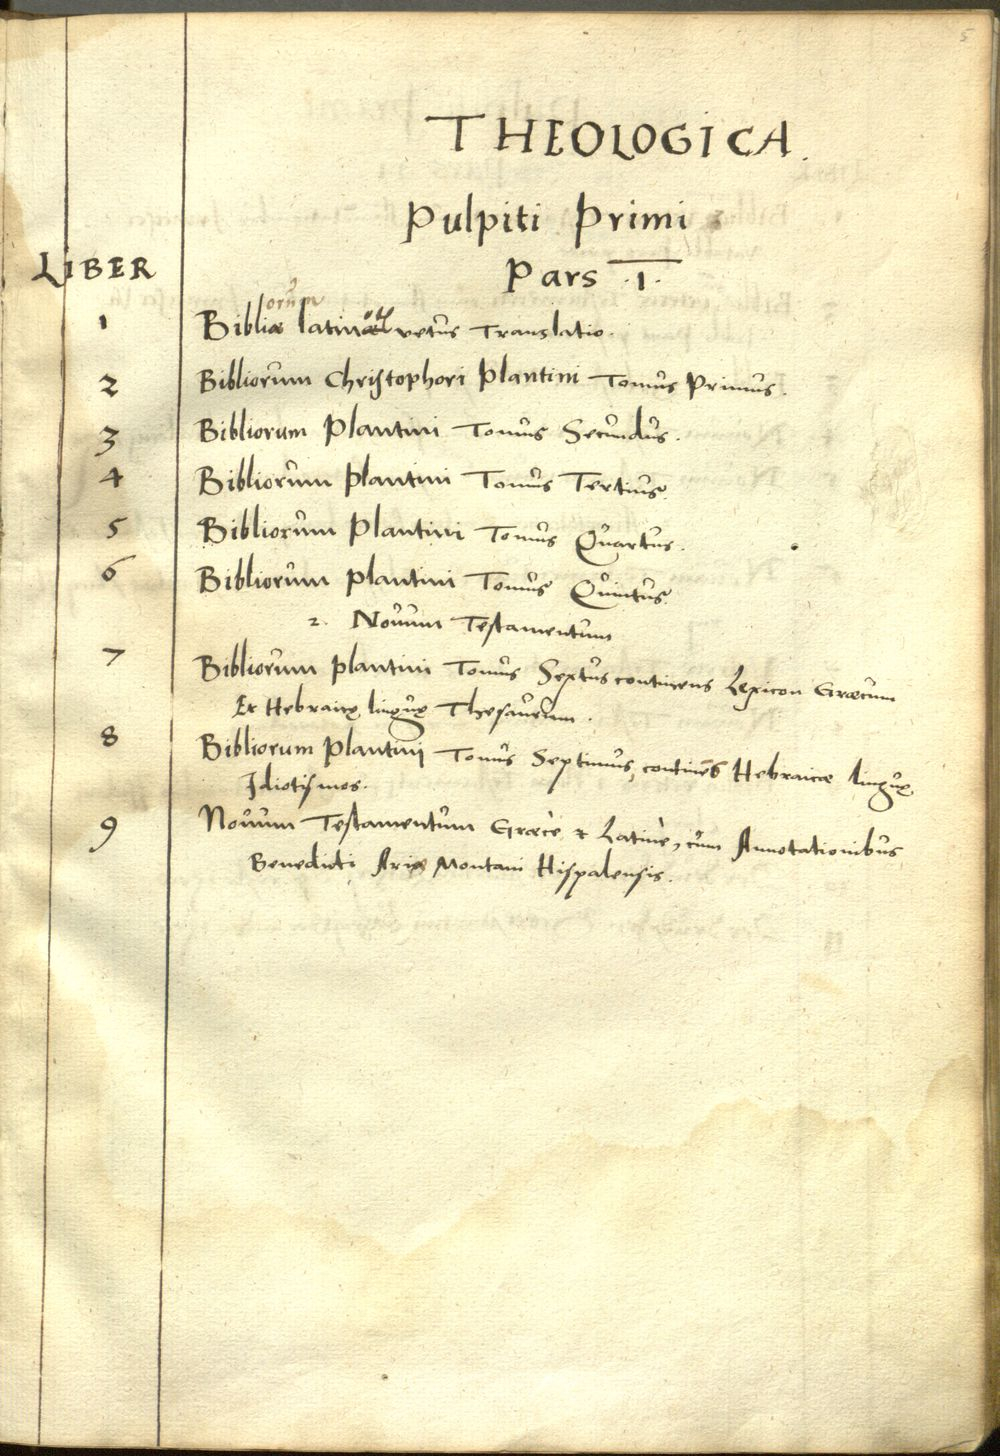 5
THEOLOGICA.
Pulpiti Primi
LIBER
Pars .I.
orum
1 Bibliæ latinæ vetus Translatio.
2 Bibliorum Christophori Plantini Tomus Primus.
3 Bibliorum Plantini Tomus Secundus.
4 Bibliorum Plantini Tomus Tertius.
5 Bibliorum Plantini Tomus Quartus.
6 Bibliorum Plantini Tomus Quintus.
2. Novum Testamentum
7 Bibliorum Plantini Tomus Sextus continens Lexicon Græcum
Et Hebraicæ linguæ Thesaurum.
8 Bibliorum Plantini Tomus Septimus, continēs Hebraicæ linguæ
Idiotismos.
9 Novum Testamentum Græcè & Latinè, cum Annotationibus
Benedicti Ariæ Montani Hispalensis.